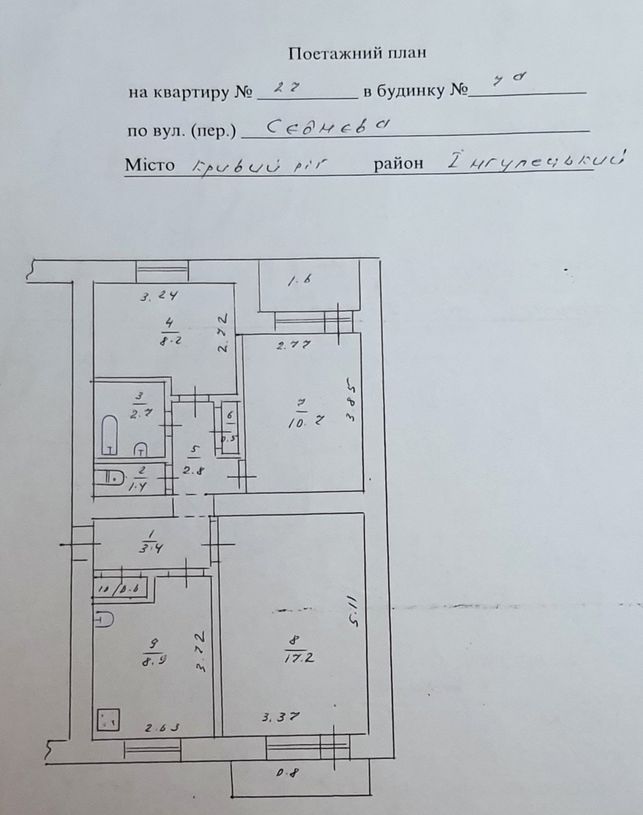 Поетажний план
на квартиру № 27 в будинку №
по вул. (пер.) Сєднєва
Місто Кривий ріг район Інгулецький
1.6
3.24
4
8.2
2.72
2.77
3
2.7
6
0.5
7
10.7
3.85
5
2.8
2
1.4
1
3.4
10/0.6
5.11
9
8.9
3.72
8
17.2
2.63
3.37
0.8